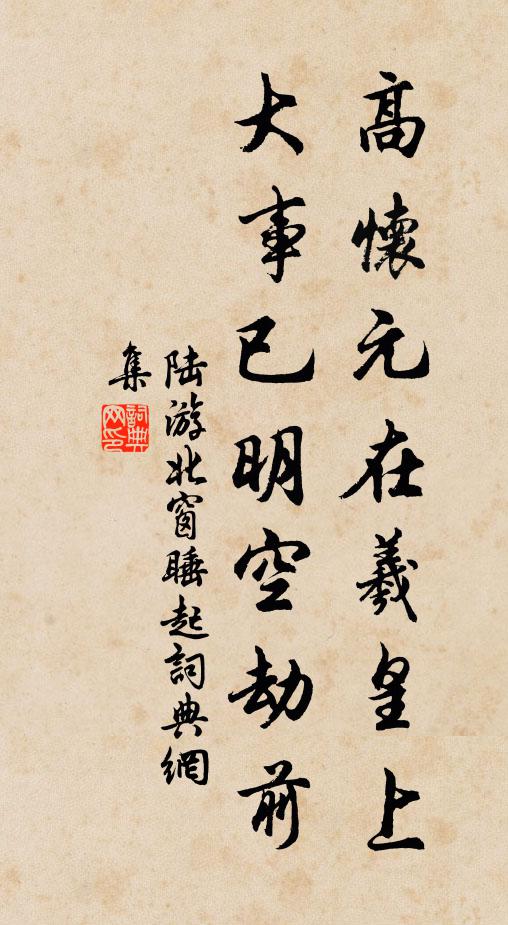 高懷元在羲皇上
大事已明空劫前
陸游北窗睡起詞典網
集
詞典網印